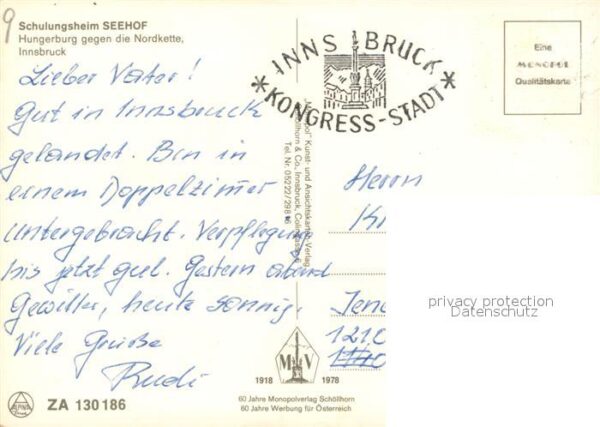 9
Schulungsheim SEEHOF
Hungerburg gegen die Nordkette,
Innsbruck
Lieber Vater!
Gut in Innsbruck
gelandet. Bin in
einem Doppelzimmer
untergebracht. Verpflegung
bis jetzt gut. Gestern abend
Gewitter, heute sonnig.
Viele Grüße
Rudi
INNSBRUCK
* KONGRESS-STADT *
Eine
MONOPOL
Qualitätskarte
Kunst- und Ansichtskarten-Verlag
Schöllhorn & Co., Innsbruck,
Tel. Nr. 05222/298
Herrn
1210
privacy protection
Datenschutz
M V
1918 1978
60 Jahre Monopolverlag Schöllhorn
60 Jahre Werbung für Österreich
ZA 130186